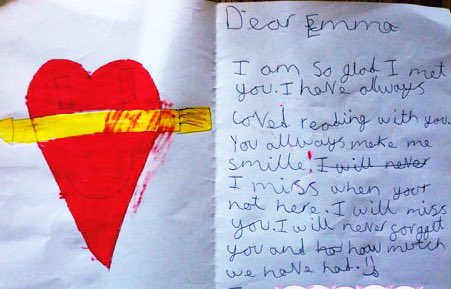 Dear Emma
I am so glad I met
you. I have allways
loved reading with you.
You allways make me
smille! I will never
I miss when your
not here. I will miss
you. I will never forgget
you and ho how mutch
we have had.